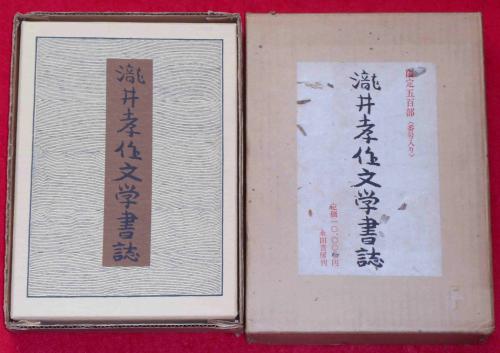 瀧井孝作文学書誌
限定五百部〈番号入り〉
瀧井孝作文学書誌
定価一〇、〇〇〇円
永田書房刊